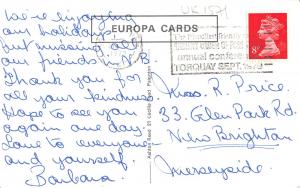 UK 1571
EUROPA CARDS
We're enjoying
our holidays
but missing all
our friends in N.B.
Thank you for
all your kindness.
Hope to see you
again one day.
Love to everyone
and yourself.
Barbara.
annual conference
TORQUAY SEPT. 1979
8P
Miss R. Price.
33. Glen Park Rd.
New Brighton
Merseyside.